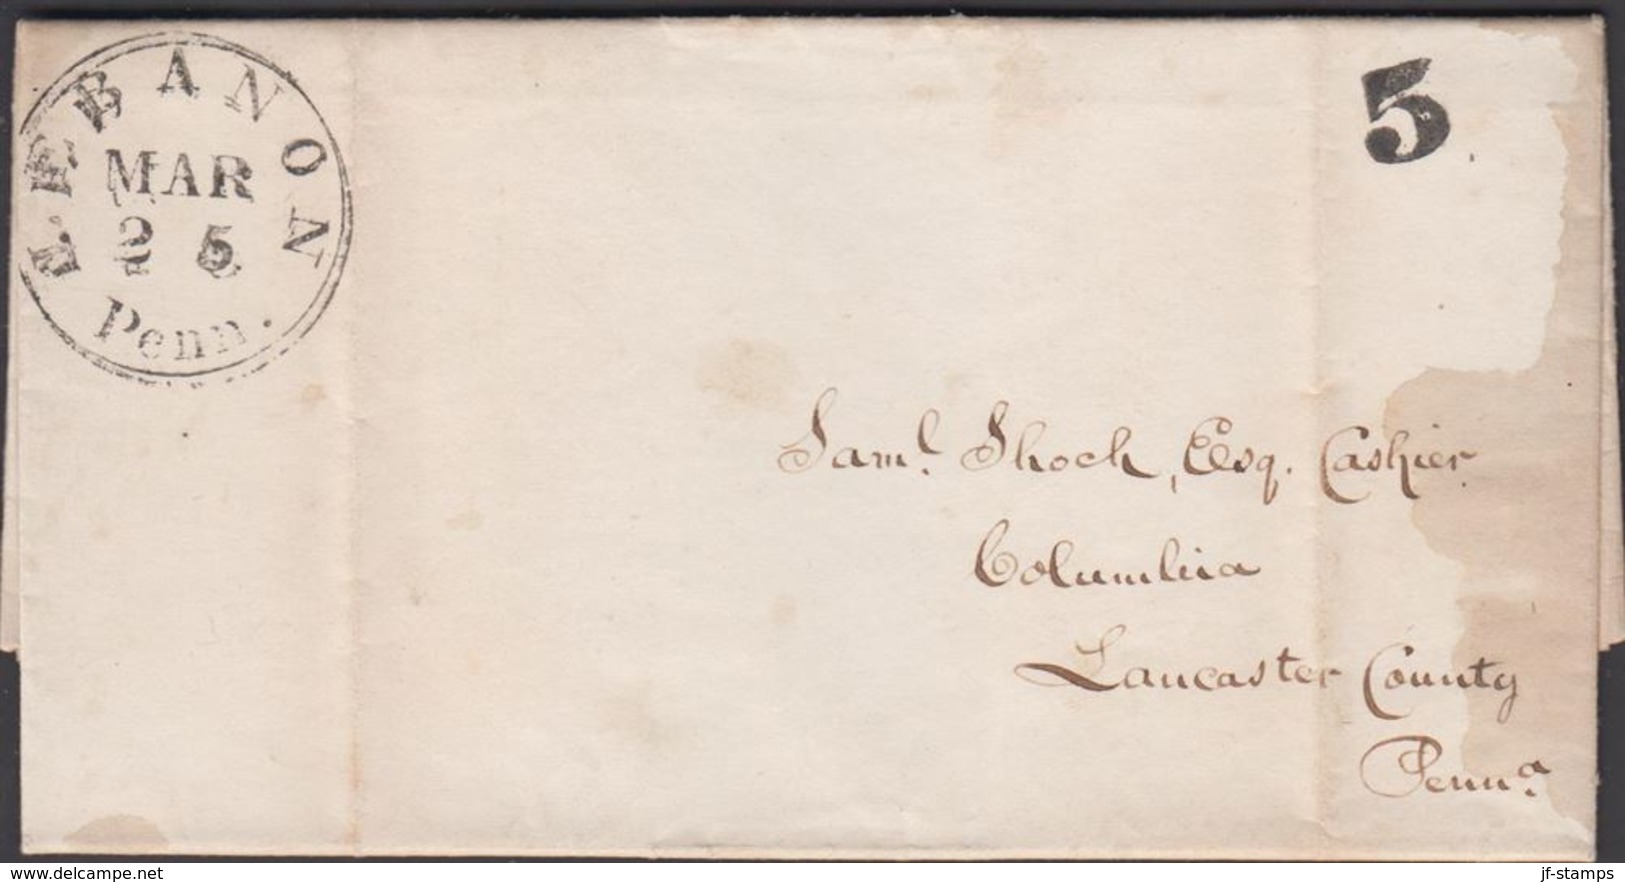 LEBANON
MAR
25
Penn.
5
Saml. Shoch, Esq. Cashier
Columbia
Lancaster County
Penna.
www.delcampe.net
jf-stamps